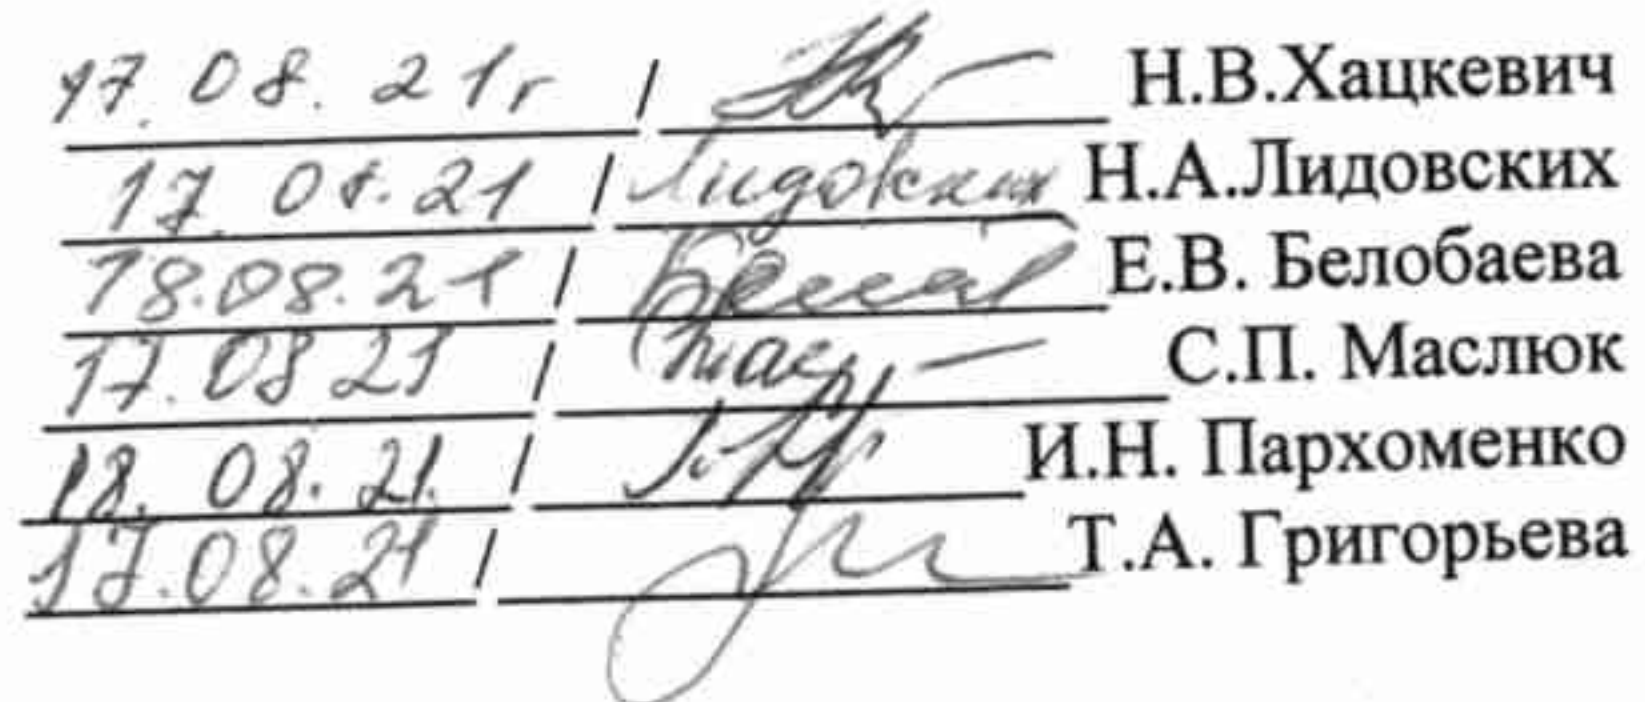 17.08.21г / Н.В.Хацкевич
17.08.21 / Лидовских Н.А.Лидовских
18.08.21 / Е.В. Белобаева
17.08 21 / С.П. Маслюк
18. 08. 21. / И.Н. Пархоменко
17.08.21 / Т.А. Григорьева